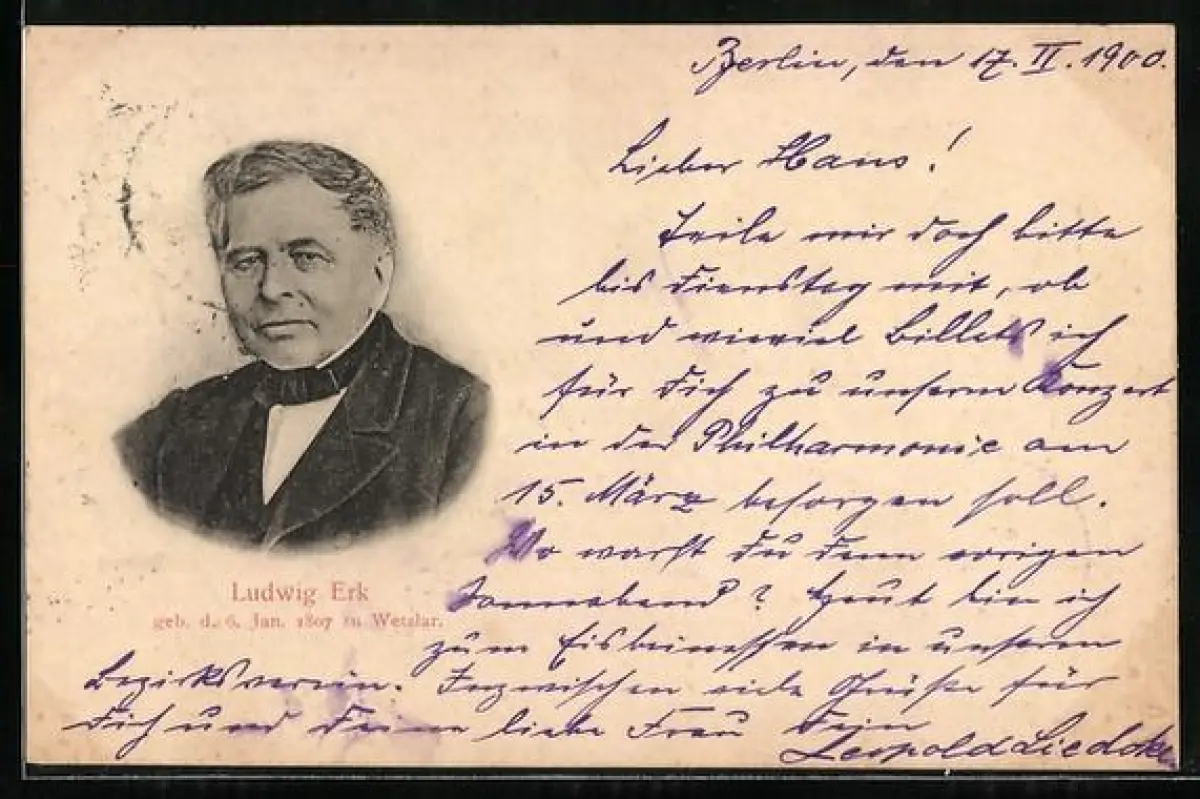 Berlin, den 17. II. 1900.
Lieber Hans!
Teile mir doch bitte
bis Dienstag mit, ob
und wieviel Billets ich
für Dich zu unserm Konzert
in der Philharmonie am
15. März besorgen soll.
Wo warst du denn vorigen
Sonnabend? Heut bin ich
zum Eisbeinessen in unserem
Bezirksverein. Inzwischen viele Grüße für
Dich und Deine liebe Frau Dein
Leopold Liedtke
Ludwig Erk
geb. d. 6. Jan. 1807 in Wetzlar.